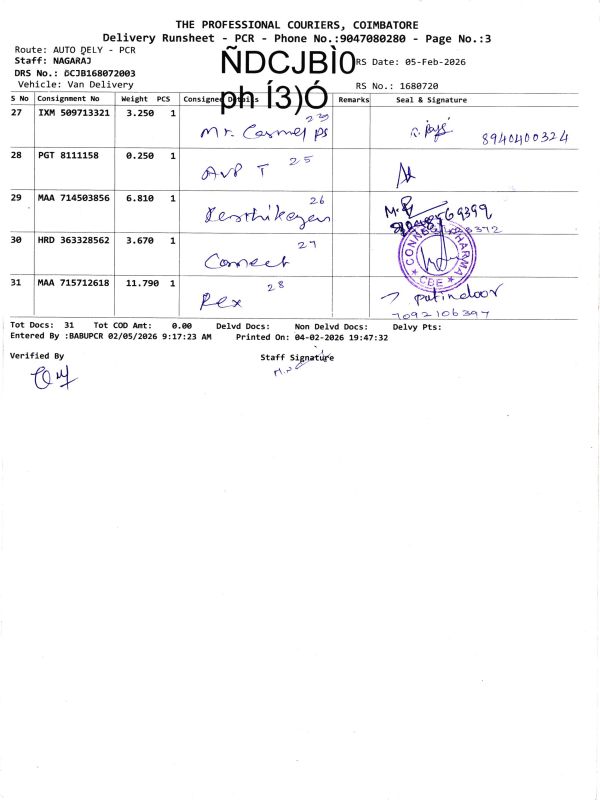 THE PROFESSIONAL COURIERS, COIMBATORE
Delivery Runsheet - PCR - Phone No.:9047080280 - Page No.:3
Route: AUTO DELY - PCR
ÑDCJBÌ0
RS Date: 05-Feb-2026
Staff: NAGARAJ
DRS No.: ÕCJB168072003
ph Í3)Ó
Vehicle: Van Delivery
RS No.: 1680720
S No Consignment No Weight PCS Consignee Details Remarks Seal & Signature
27 IXM 509713321 3.250 1
Mr. Carmel PS
8940400324
28 PGT 8111158 0.250 1
AVP T 25
29 MAA 714503856 6.810 1
26
30 HRD 363328562 3.670 1
Connect 27
CONNECT PHARMA
* CBE *
31 MAA 715712618 11.790 1
Rex 28
7092106397
Tot Docs: 31 Tot COD Amt: 0.00 Delvd Docs: Non Delvd Docs: Delvy Pts:
Entered By :BABUPCR 02/05/2026 9:17:23 AM Printed On: 04-02-2026 19:47:32
Verified By
Staff Signature